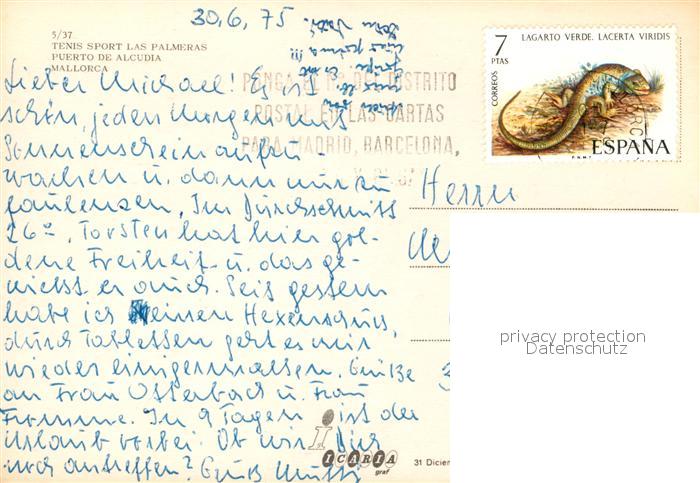 30.6.75
5/37
TENIS SPORT LAS PALMERAS
PUERTO DE ALCUDIA
MALLORCA
7
PTAS
LAGARTO VERDE. LACERTA VIRIDIS
CORREOS
F.N.M.T.
ESPAÑA
PONGA EL Nº DEL DISTRITO
POSTAL EN LAS CARTAS
PARA MADRID, BARCELONA,
Lieber Michael! Es ist
schön, jeden Morgen mit
Sonnenschein aufzu-
wachen u. dann nur zu
faulenzen. Im Durchschnitt
26°. Torsten hat hier gol-
dene Freiheit u. das ge-
niesst er auch. Seit gestern
habe ich einen Hexenschuss,
durch Tabletten geht es mir
wieder einigermassen. Grüße
an Frau Otterbach u. Frau
Fromme. In 9 Tagen ist der
Urlaub vorbei. Ob wir Dich
noch antreffen? Gruß Mutti
Herrn
i
ICARIA
graf
31 Diciem
privacy protection
Datenschutz